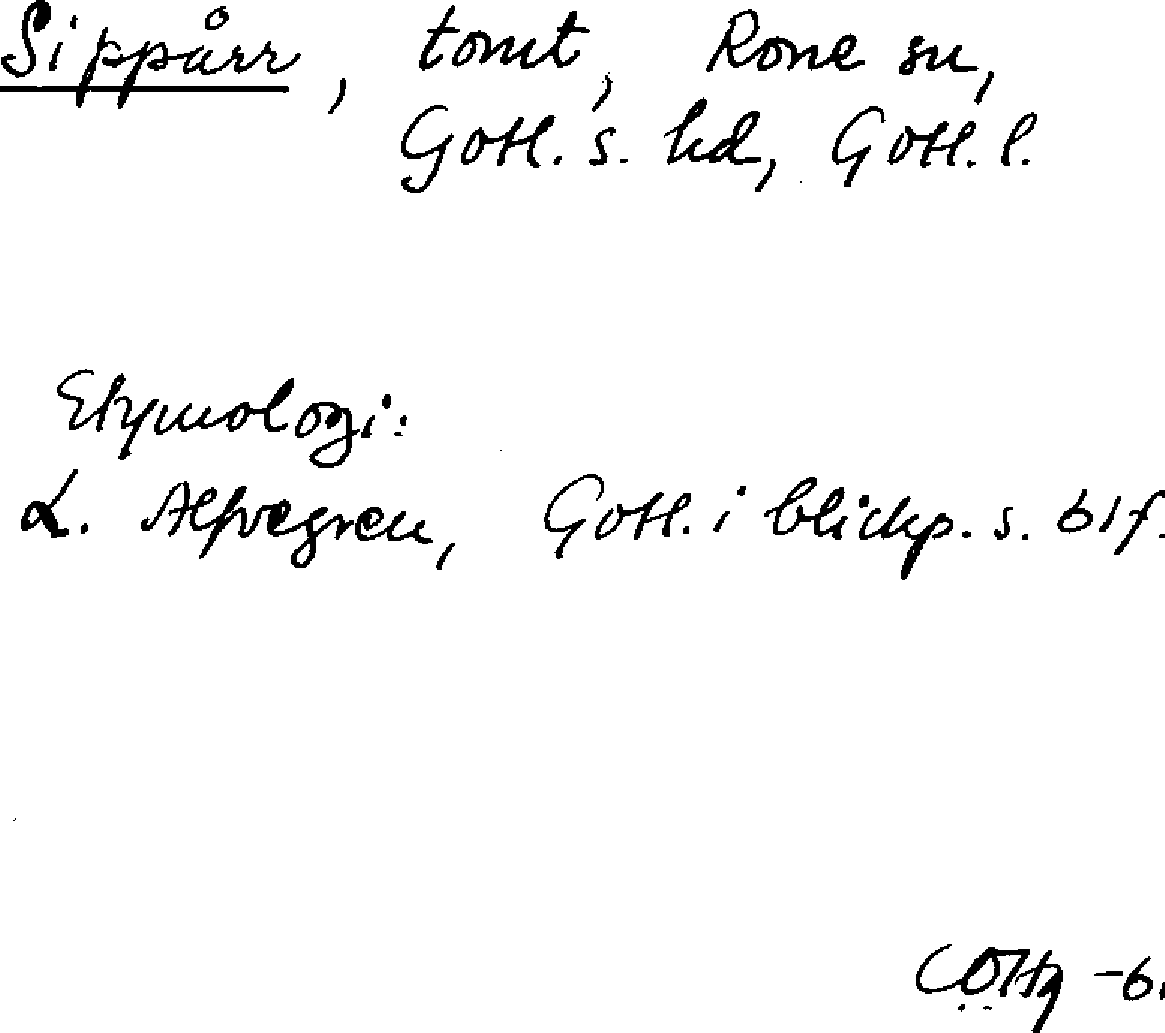 Sippårr, tomt, Rone sn,
Gotl. s. hd, Gotl. l.
Etymologi:
L. Alfvegren, Gotl. i blickp. s. 61f.